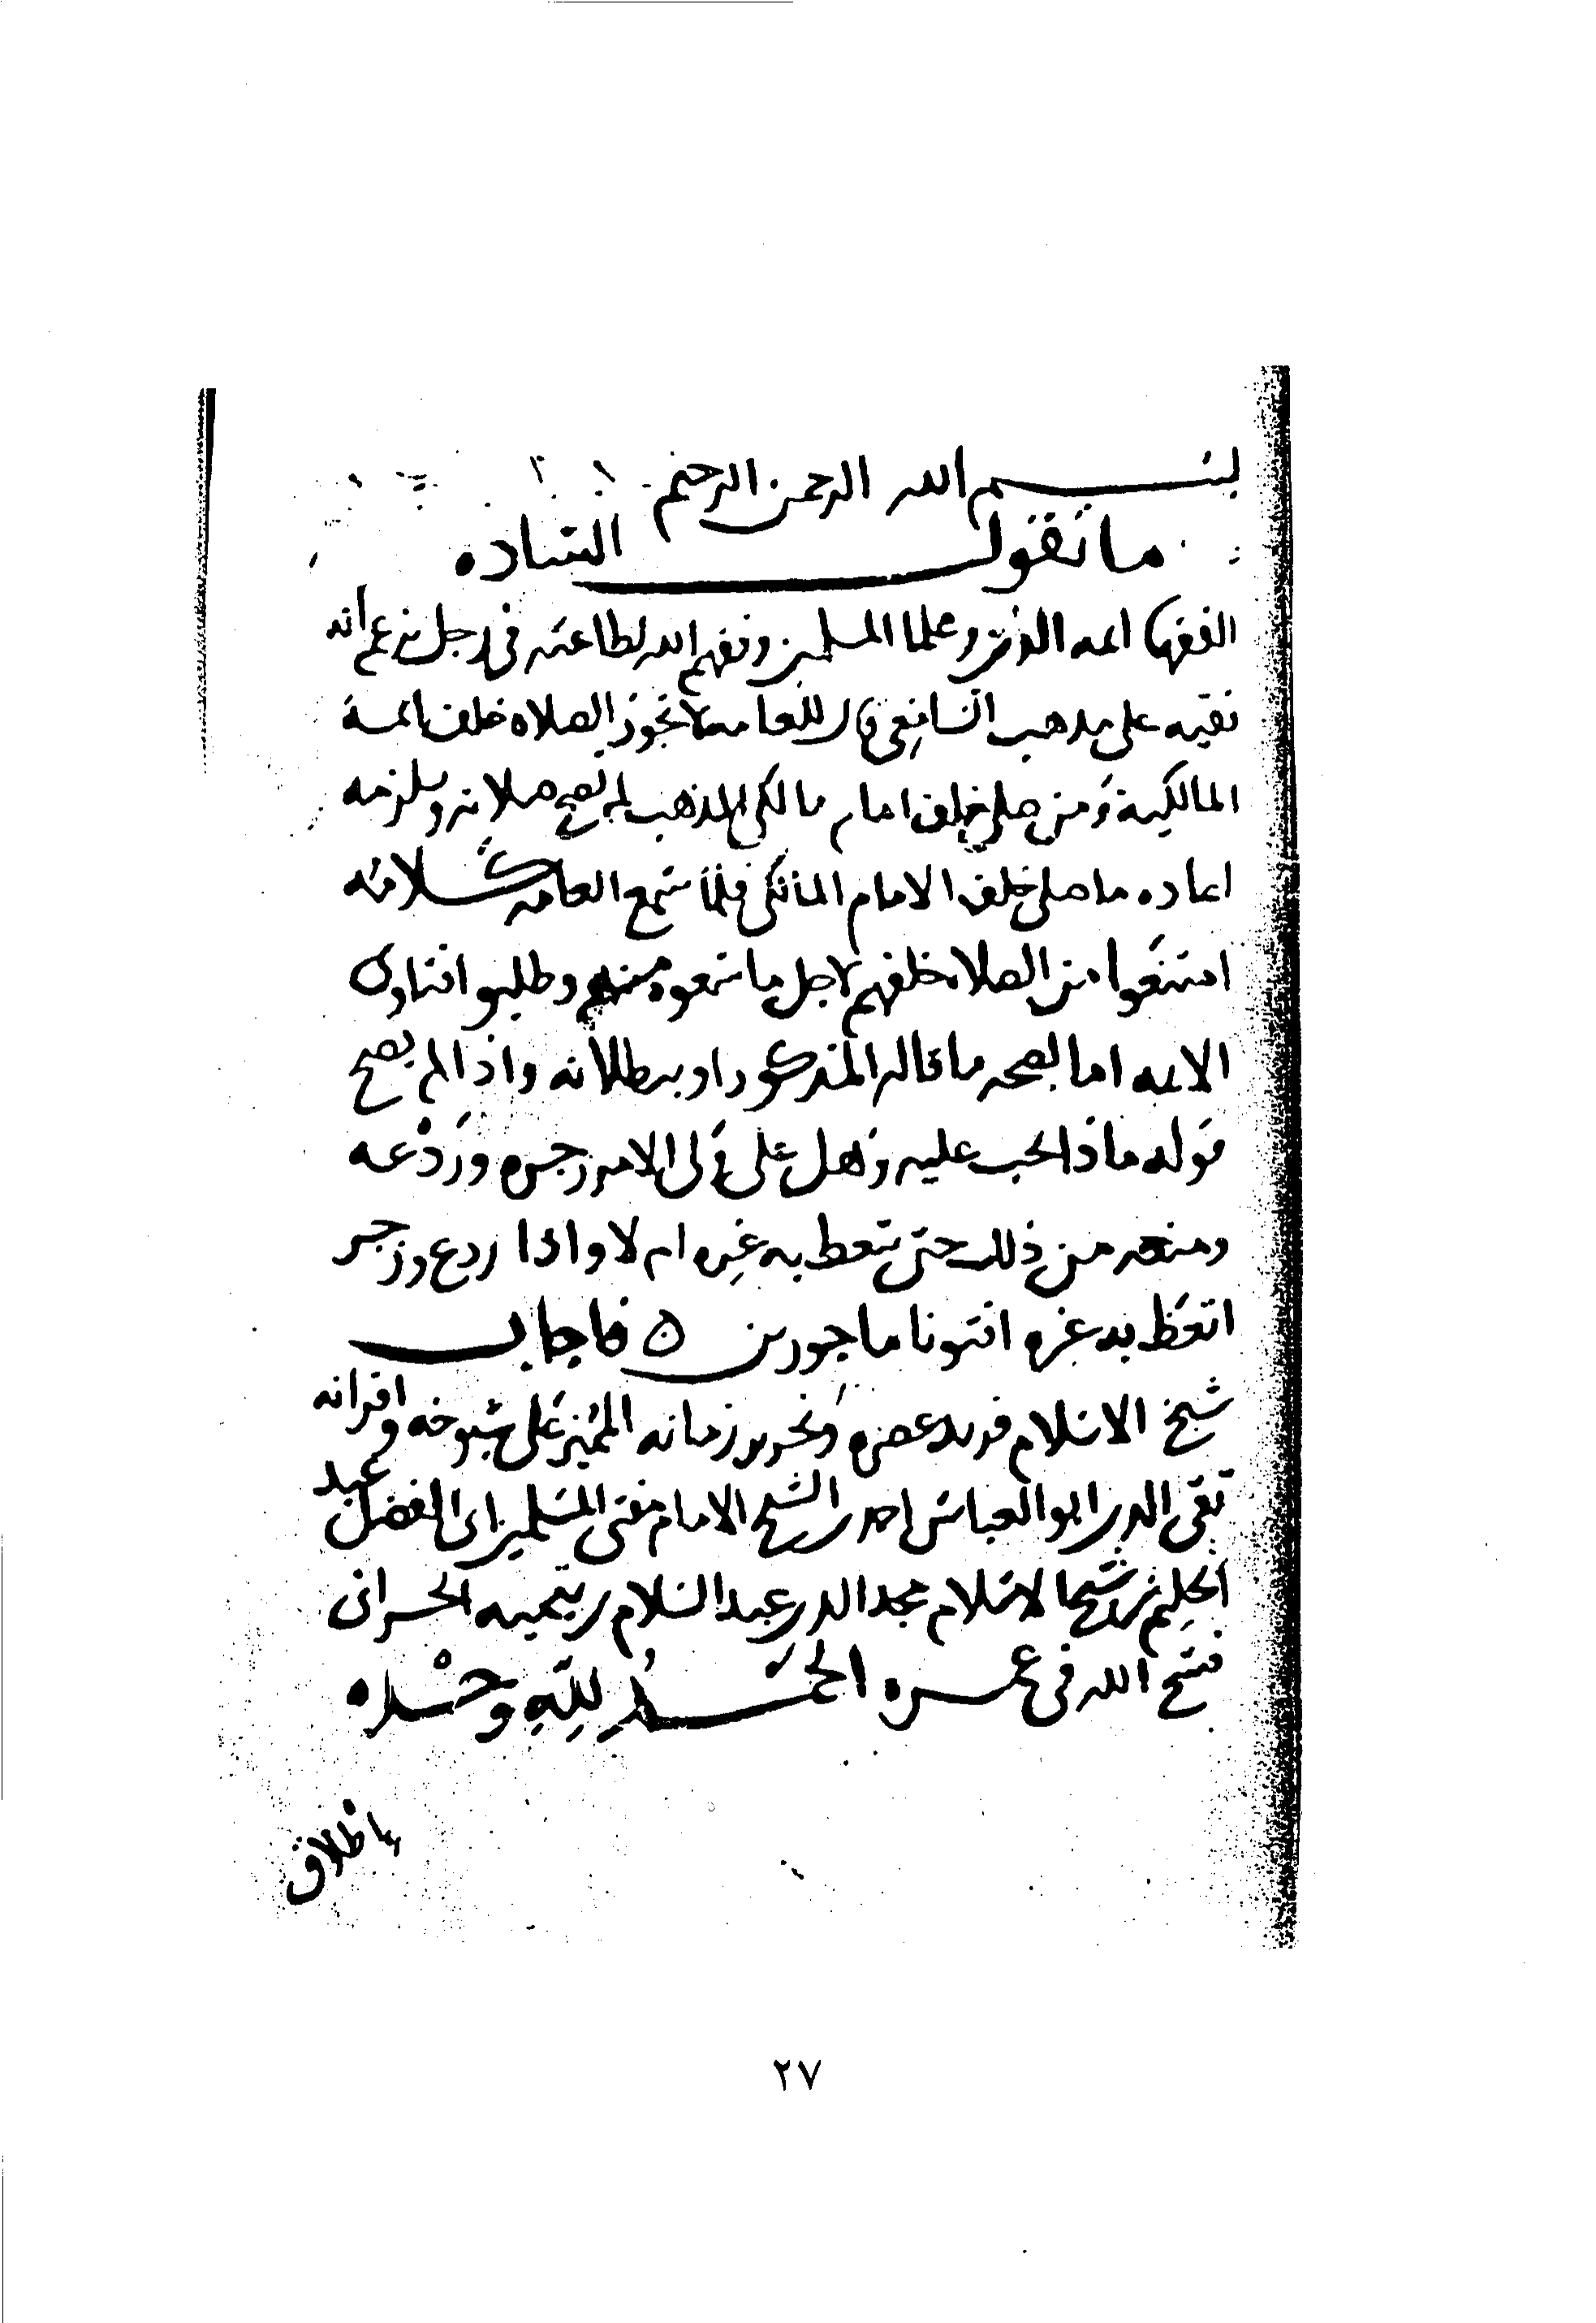 بسم الله الرحمن الرحيم
ما تقول الساده
الفقها ايمه الدين وعلما المسلمين وفقهم الله لطاعته في رجل يزعم انه
فقيه على مدهب الشافعي قال للعامه لا تجوز الصلاه خلف ايمة
المالكية ومن صلى خلف امام مالكي المذهب لم تصح صلاته ويلزمه
اعاده ما صلى خلف الامام المالكي فلما سمع العامه كلامه
امتنعوا من الصلاه خلفهم لاجل ما سمعوه منهم وطلبوا فتاوى
الايمه اما بصحه ما قاله المذكور او ببطلانه واذا لم يصح
قوله ماذا يجب عليه وهل على ولي الامر زجره وردعه
ومنعه من ذلك حتى يتعظ به غيره ام لا واذا ردع وزجر
اتعظ به غيره افتونا ماجورين ه فاجاب
شيخ الاسلام فريد عصره ونحرير زمانه المميز على شيوخه واقرانه
تقي الدين ابو العباس احمد بن الشيخ الامام مفتي المسلمين ابي الفضل عبد
الحليم بن شيخ الاسلام مجد الدين عبد السلام بن تيميه الحراني
فسح الله في عمره الحمد لله وحده
اطلاق
٢٧